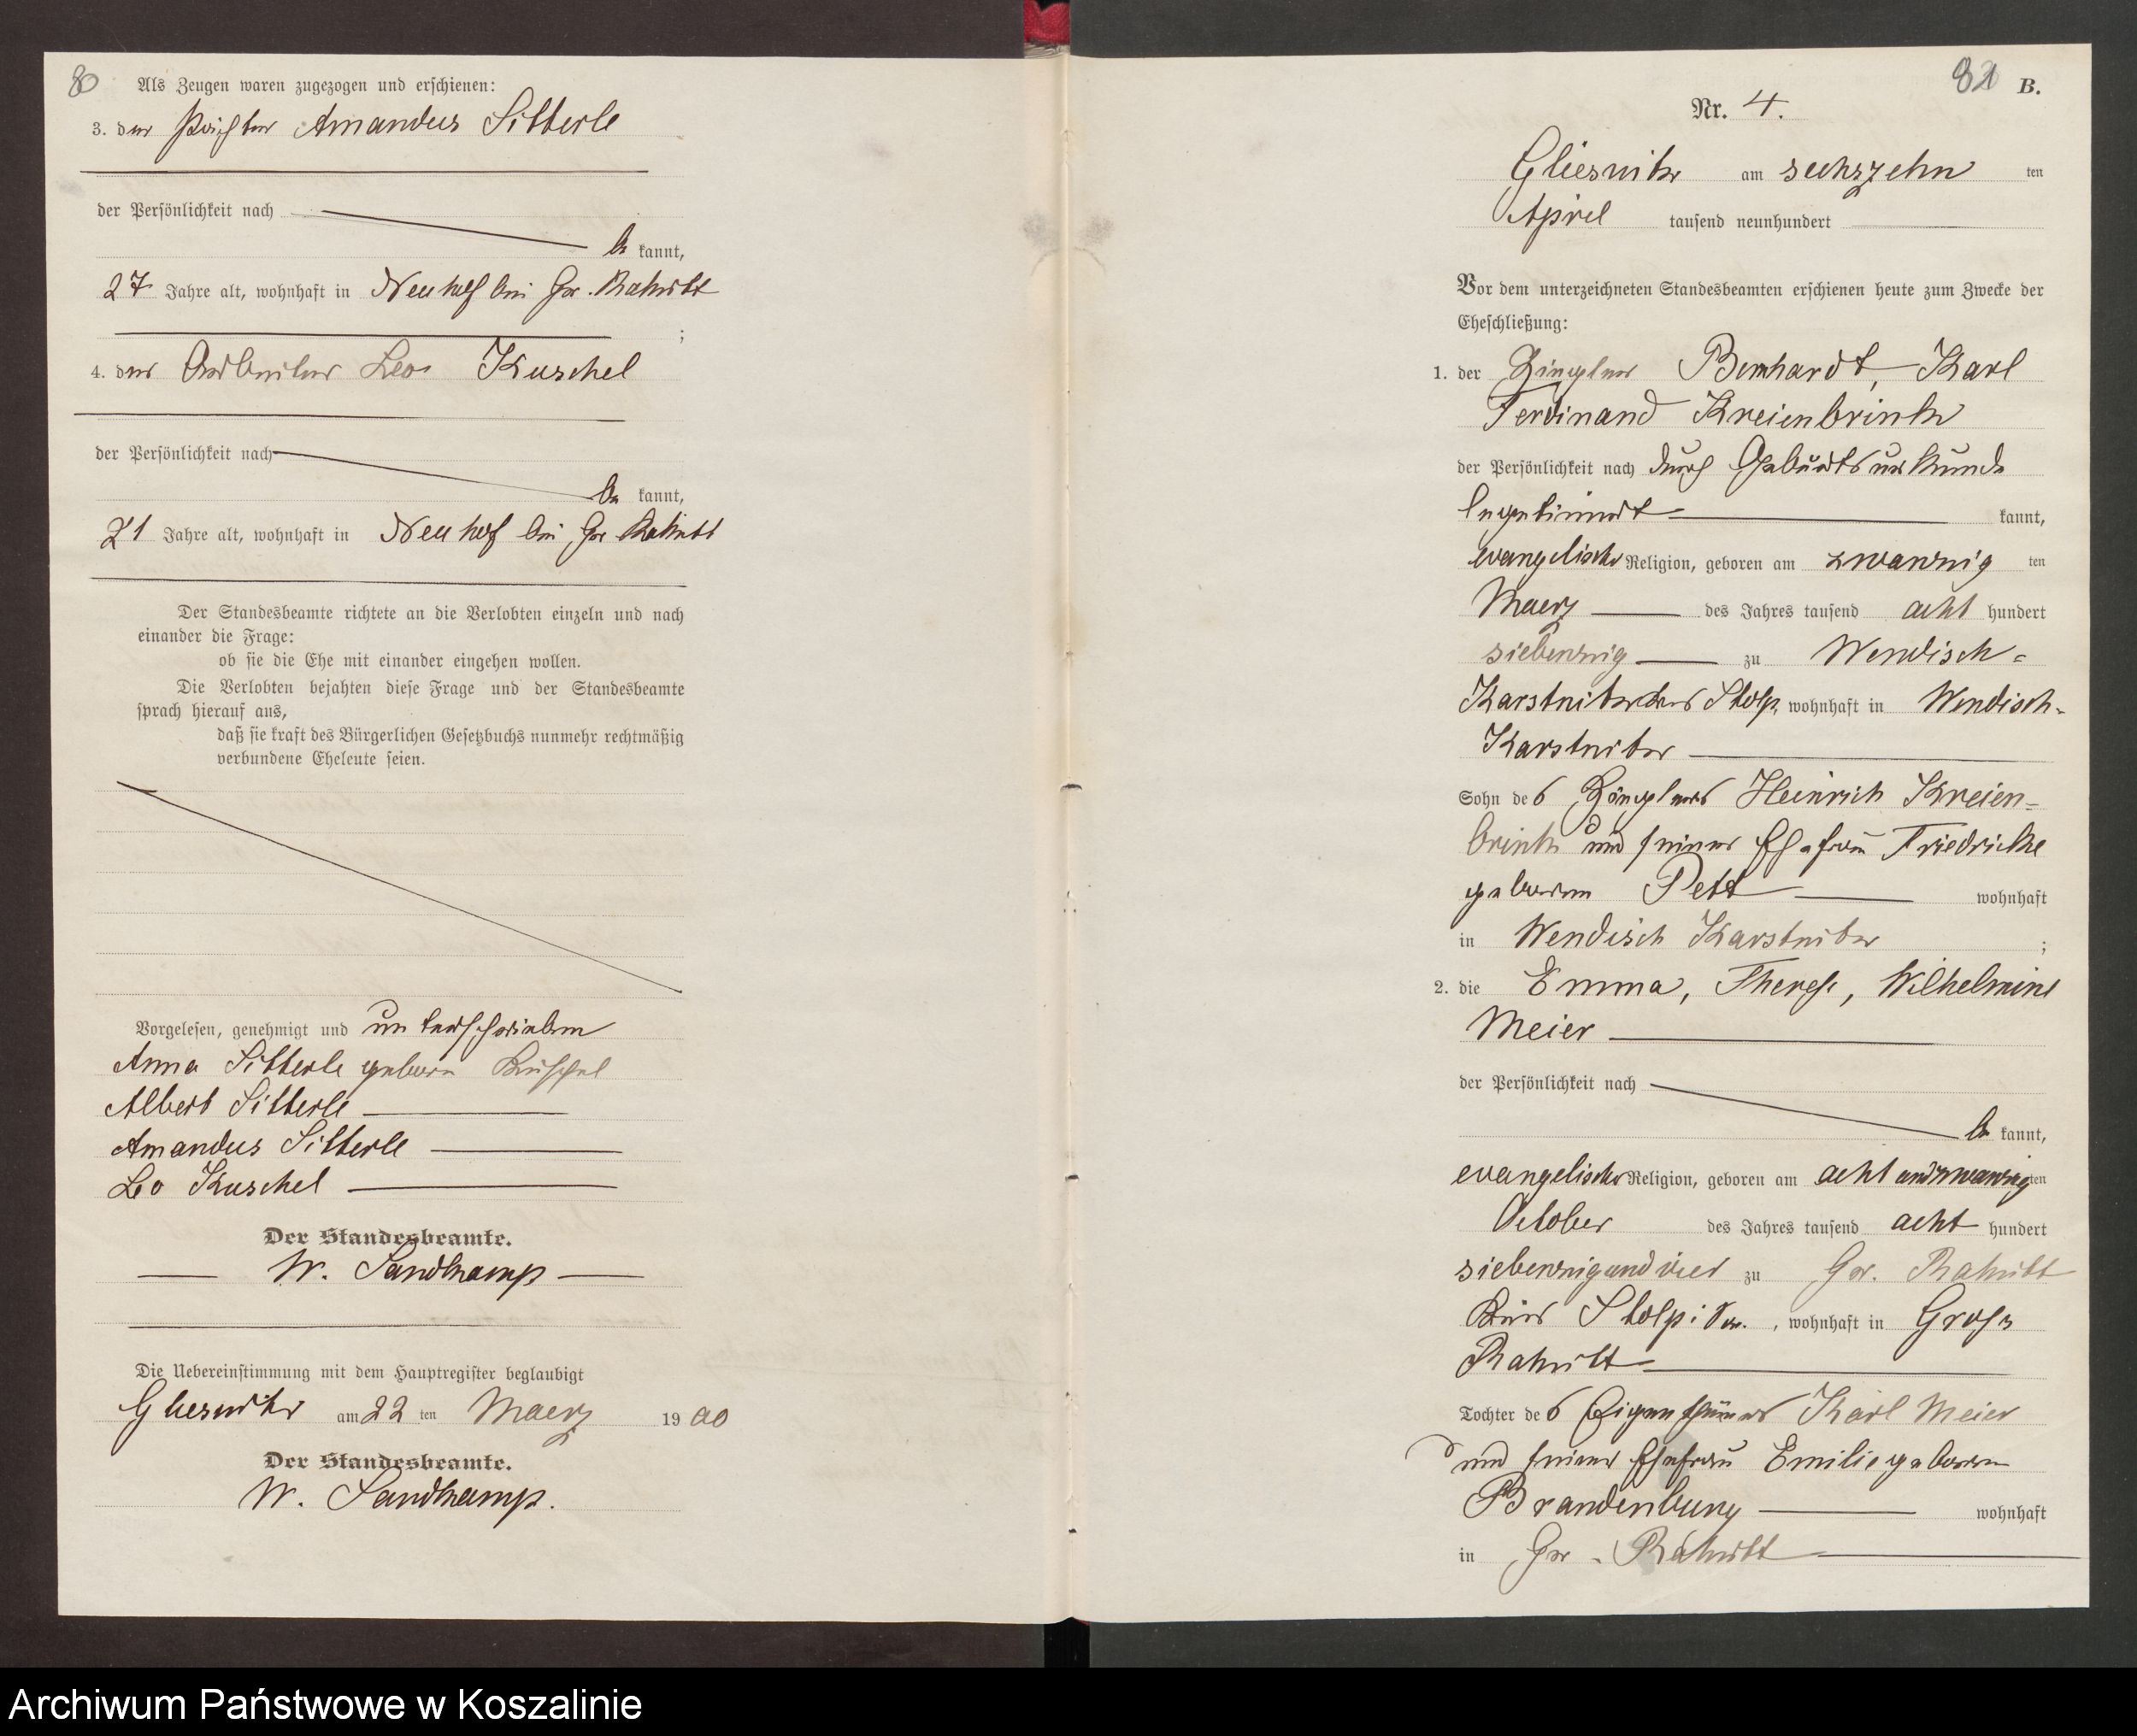 80
Als Zeugen waren zugezogen und erschienen:
3. der Pächter Amandus Sitterle
der Persönlichkeit nach
be kannt,
27 Jahre alt, wohnhaft in Neuhof bei Gr. Rakitt
;
4. der Arbeiter Leo Kuschel
der Persönlichkeit nach
be kannt,
21 Jahre alt, wohnhaft in Neuhof bei Gr Rakitt
Der Standesbeamte richtete an die Verlobten einzeln und nach
einander die Frage:
ob sie die Ehe mit einander eingehen wollen.
Die Verlobten bejahten diese Frage und der Standesbeamte
sprach hierauf aus,
daß sie kraft des Bürgerlichen Gesetzbuchs nunmehr rechtmäßig
verbundene Eheleute seien.
Vorgelesen, genehmigt und unterschrieben
Anna Sitterle geborn Kuschel
Albert Sitterle
Amandus Sitterle
Leo Kuschel
Der Standesbeamte.
W. Sandkamp
Die Uebereinstimmung mit dem Hauptregister beglaubigt
Gliesnitz am 22 ten Maerz 1900
Der Standesbeamte.
W. Sandkamp.
81 B.
Nr. 4.
Gliesnitz am sechszehn ten
April tausend neunhundert
Vor dem unterzeichneten Standesbeamten erschienen heute zum Zwecke der
Eheschließung:
1. der Ziegler Bernhardt, Karl
Ferdinand Kreienbrink
der Persönlichkeit nach durch Geburtsurkunde
legetimirt kannt,
evangelischer Religion, geboren am zwanzig ten
Maerz des Jahres tausend acht hundert
siebenzig zu Wendisch-
Karstnitz Kreis Stolp, wohnhaft in Wendisch-
Karstnitz
Sohn des Zieglers Heinrich Kreien-
brink und seiner Ehefrau Friedricke
geboren Pett wohnhaft
in Wendisch Karstnitz ;
2. die Emma, Therese, Wilhelmine
Meier
der Persönlichkeit nach
be kannt,
evangelischer Religion, geboren am acht und zwanzig ten
October des Jahres tausend acht hundert
siebenzig und vier zu Gr. Rakitt
Kreis Stolp i. Pom., wohnhaft in Gross
Rakitt
Tochter des Eigenthümers Karl Meier
und seiner Ehefrau Emilie geboren
Brandenburg wohnhaft
in Gr. Rakitt
Archiwum Państwowe w Koszalinie